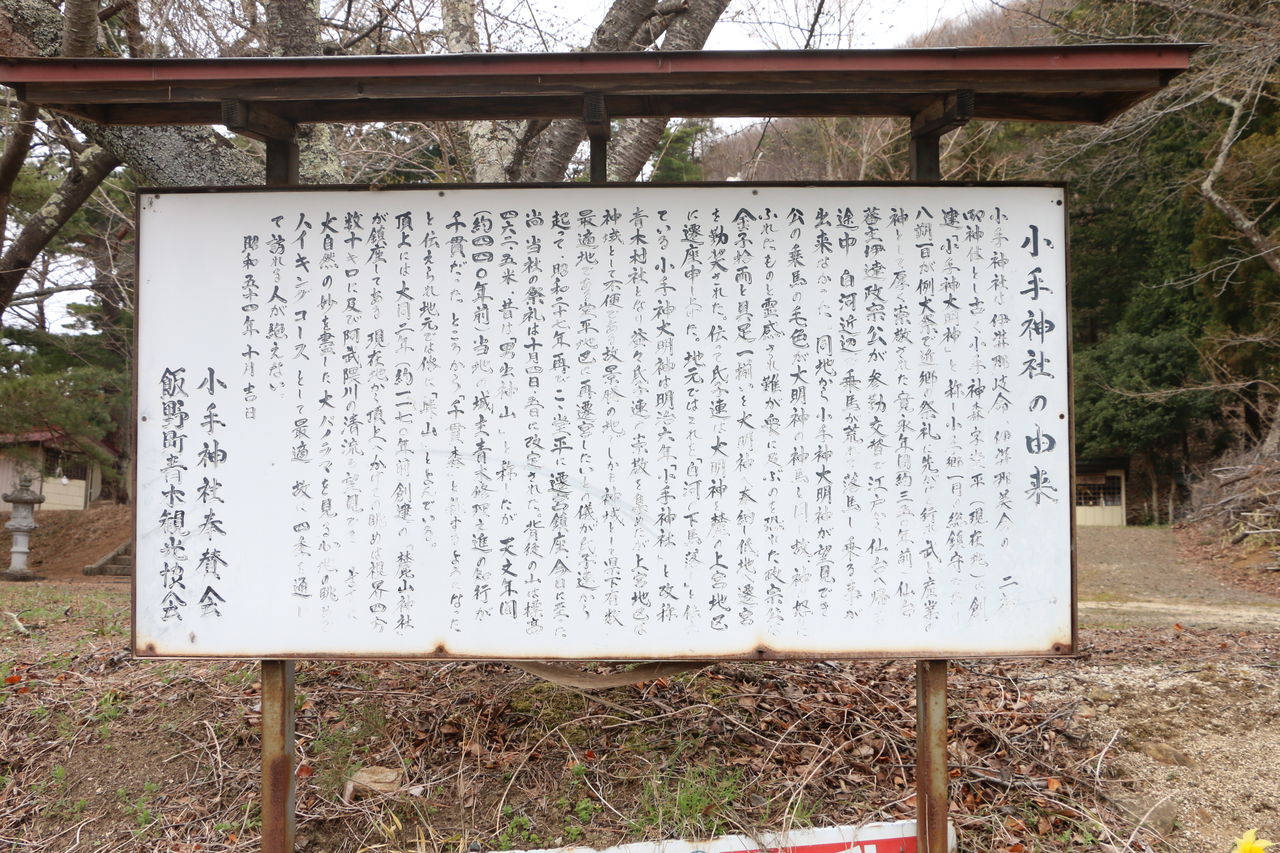 小手神社の由来
小手神社は伊弉那岐命、伊弉那美命の二
御神体として古く小手神森字堂平(現在地)に創
建「小手神大明神」と称し小手郷一円の総鎮守
八朔一日が例大祭で近郷の祭礼に先がけ行れ武と産業の
神として厚く崇敬された寛永年間約三五〇年前仙台
藩主伊達政宗公が参勤交替で江戸から仙台へ帰
途中白河近辺で乗馬が荒れ落馬し乗る事が
出来なかった。同地から小手神大明神が望見でき
公の乗馬の毛色が大明神の神馬と同じ故、神の怒り
ふれたものと霊感され難が衆に及ぶのを恐れた政宗公
金子拾両と具足一揃を大明神へ奉納低地へ遷宮
を勧奨された。伝て氏子連は大明神を麓の上宮地区
に遷座申し上げた。地元ではこれを「白河の下馬落し」と伝
ている小手神大明神は明治六年「小手神社」と改称
青木村社となり益々氏子連の崇敬を集めたが上宮地区は
神域として不便である故景勝の地しかも神域として県下有数
最適地である堂平地区に再遷宮したいとの儀が氏子連から
起て、昭和二十七年再びここ堂平に遷宮鎮座今日に至た
尚当社の祭礼は十月四日五日に改定された。背後の山は標高
四六三・五米、昔は「男出神山」と称したが天文年間
(約四四〇年前)当地の城主青木修理之進の知行が
千貫だった。ところから千貫森と称するようになった
と伝えられ地元では俗に「峠山」ともよんでいる。
頂上には大同二年(約一一七〇年前)創建の杜鵑山神社
が鎮座してある現在地から頂上へかけての眺めは視界四方
数十キロに及び阿武隈川の清流も望見でき
大自然の妙を尽した大パノラマを見る心地の眺め
ハイキングコースとして最適故に四季を通し
て訪れる人が絶えない。
昭和五十四年十月吉日
小手神社奉賛会
飯野町青木観光協会